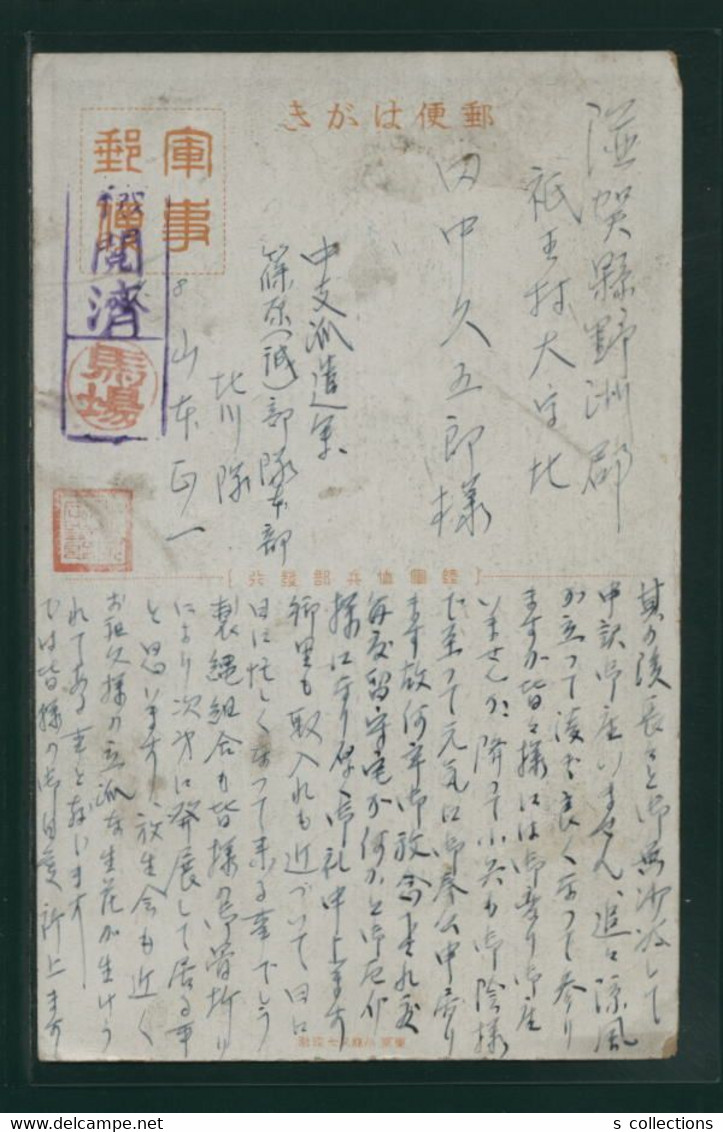 郵便はがき
軍事
郵便
検閲済
馬場
滋賀縣野洲郡
祇王村大字北
田中久五郎様
中支派遣軍
篠原(誠)部隊本部
北川隊
山本正一
【陸軍恤兵部發行】
其の後長々と御無沙汰して
申訳御座いません、追々涼風
が立って凌ぎ良くなって参り
ますが皆々様には御変り御座
いませんか、降って小生も御陰様
で至って元気に御奉公申居り
ます故何卒御放念下され度
毎度留守宅が何かと御厄介
様になり厚く御礼申上ます
郷里も取入れも近づいて日に
日に忙しくなって来る事でしょう
製縄組合も皆様の御骨折り
により次第に発展して居る事
と思います、放生会も近く
お祖父様の立派な生花が生けら
れてある事と存じます
では皆様の御自愛祈上ます
www.delcampe.net
s collections